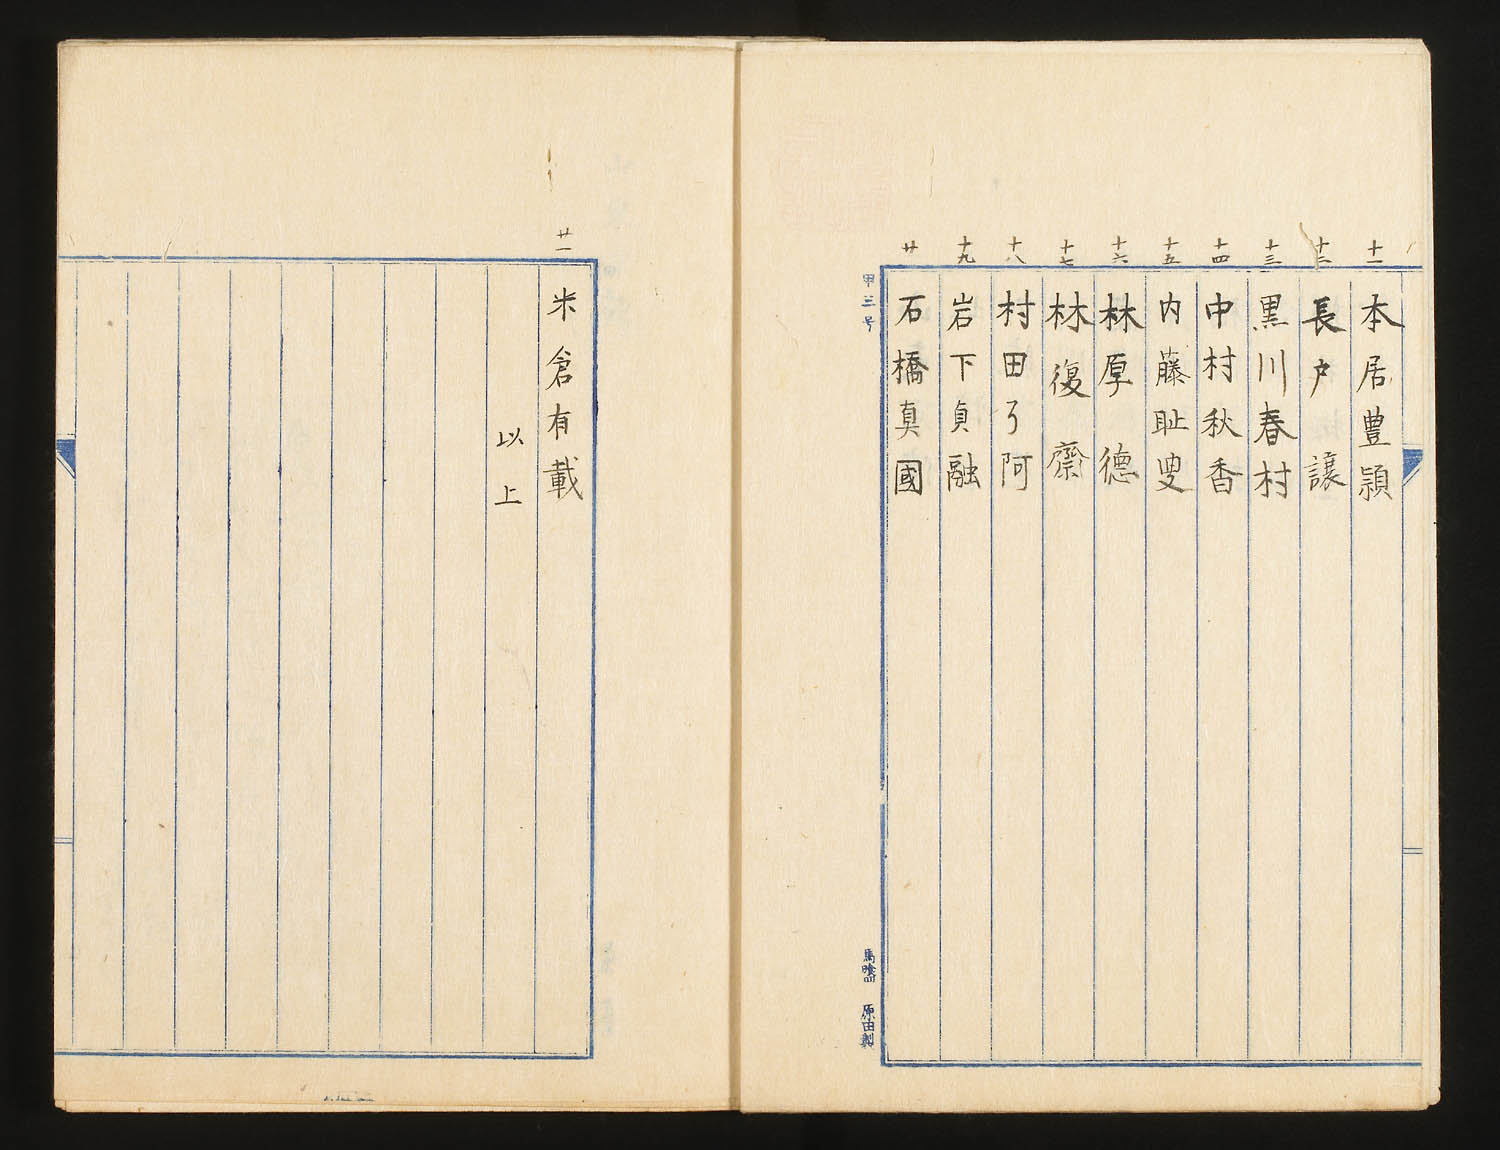 十一
本居豊頴
十二
長戸譲
十三
黒川春村
十四
中村秋香
十五
内藤耻叟
十六
林厚徳
十七
林復齋
十八
村田了阿
十九
岩下貞融
廿
石橋真國
甲三号
原由製
廿一
米倉有載
以上